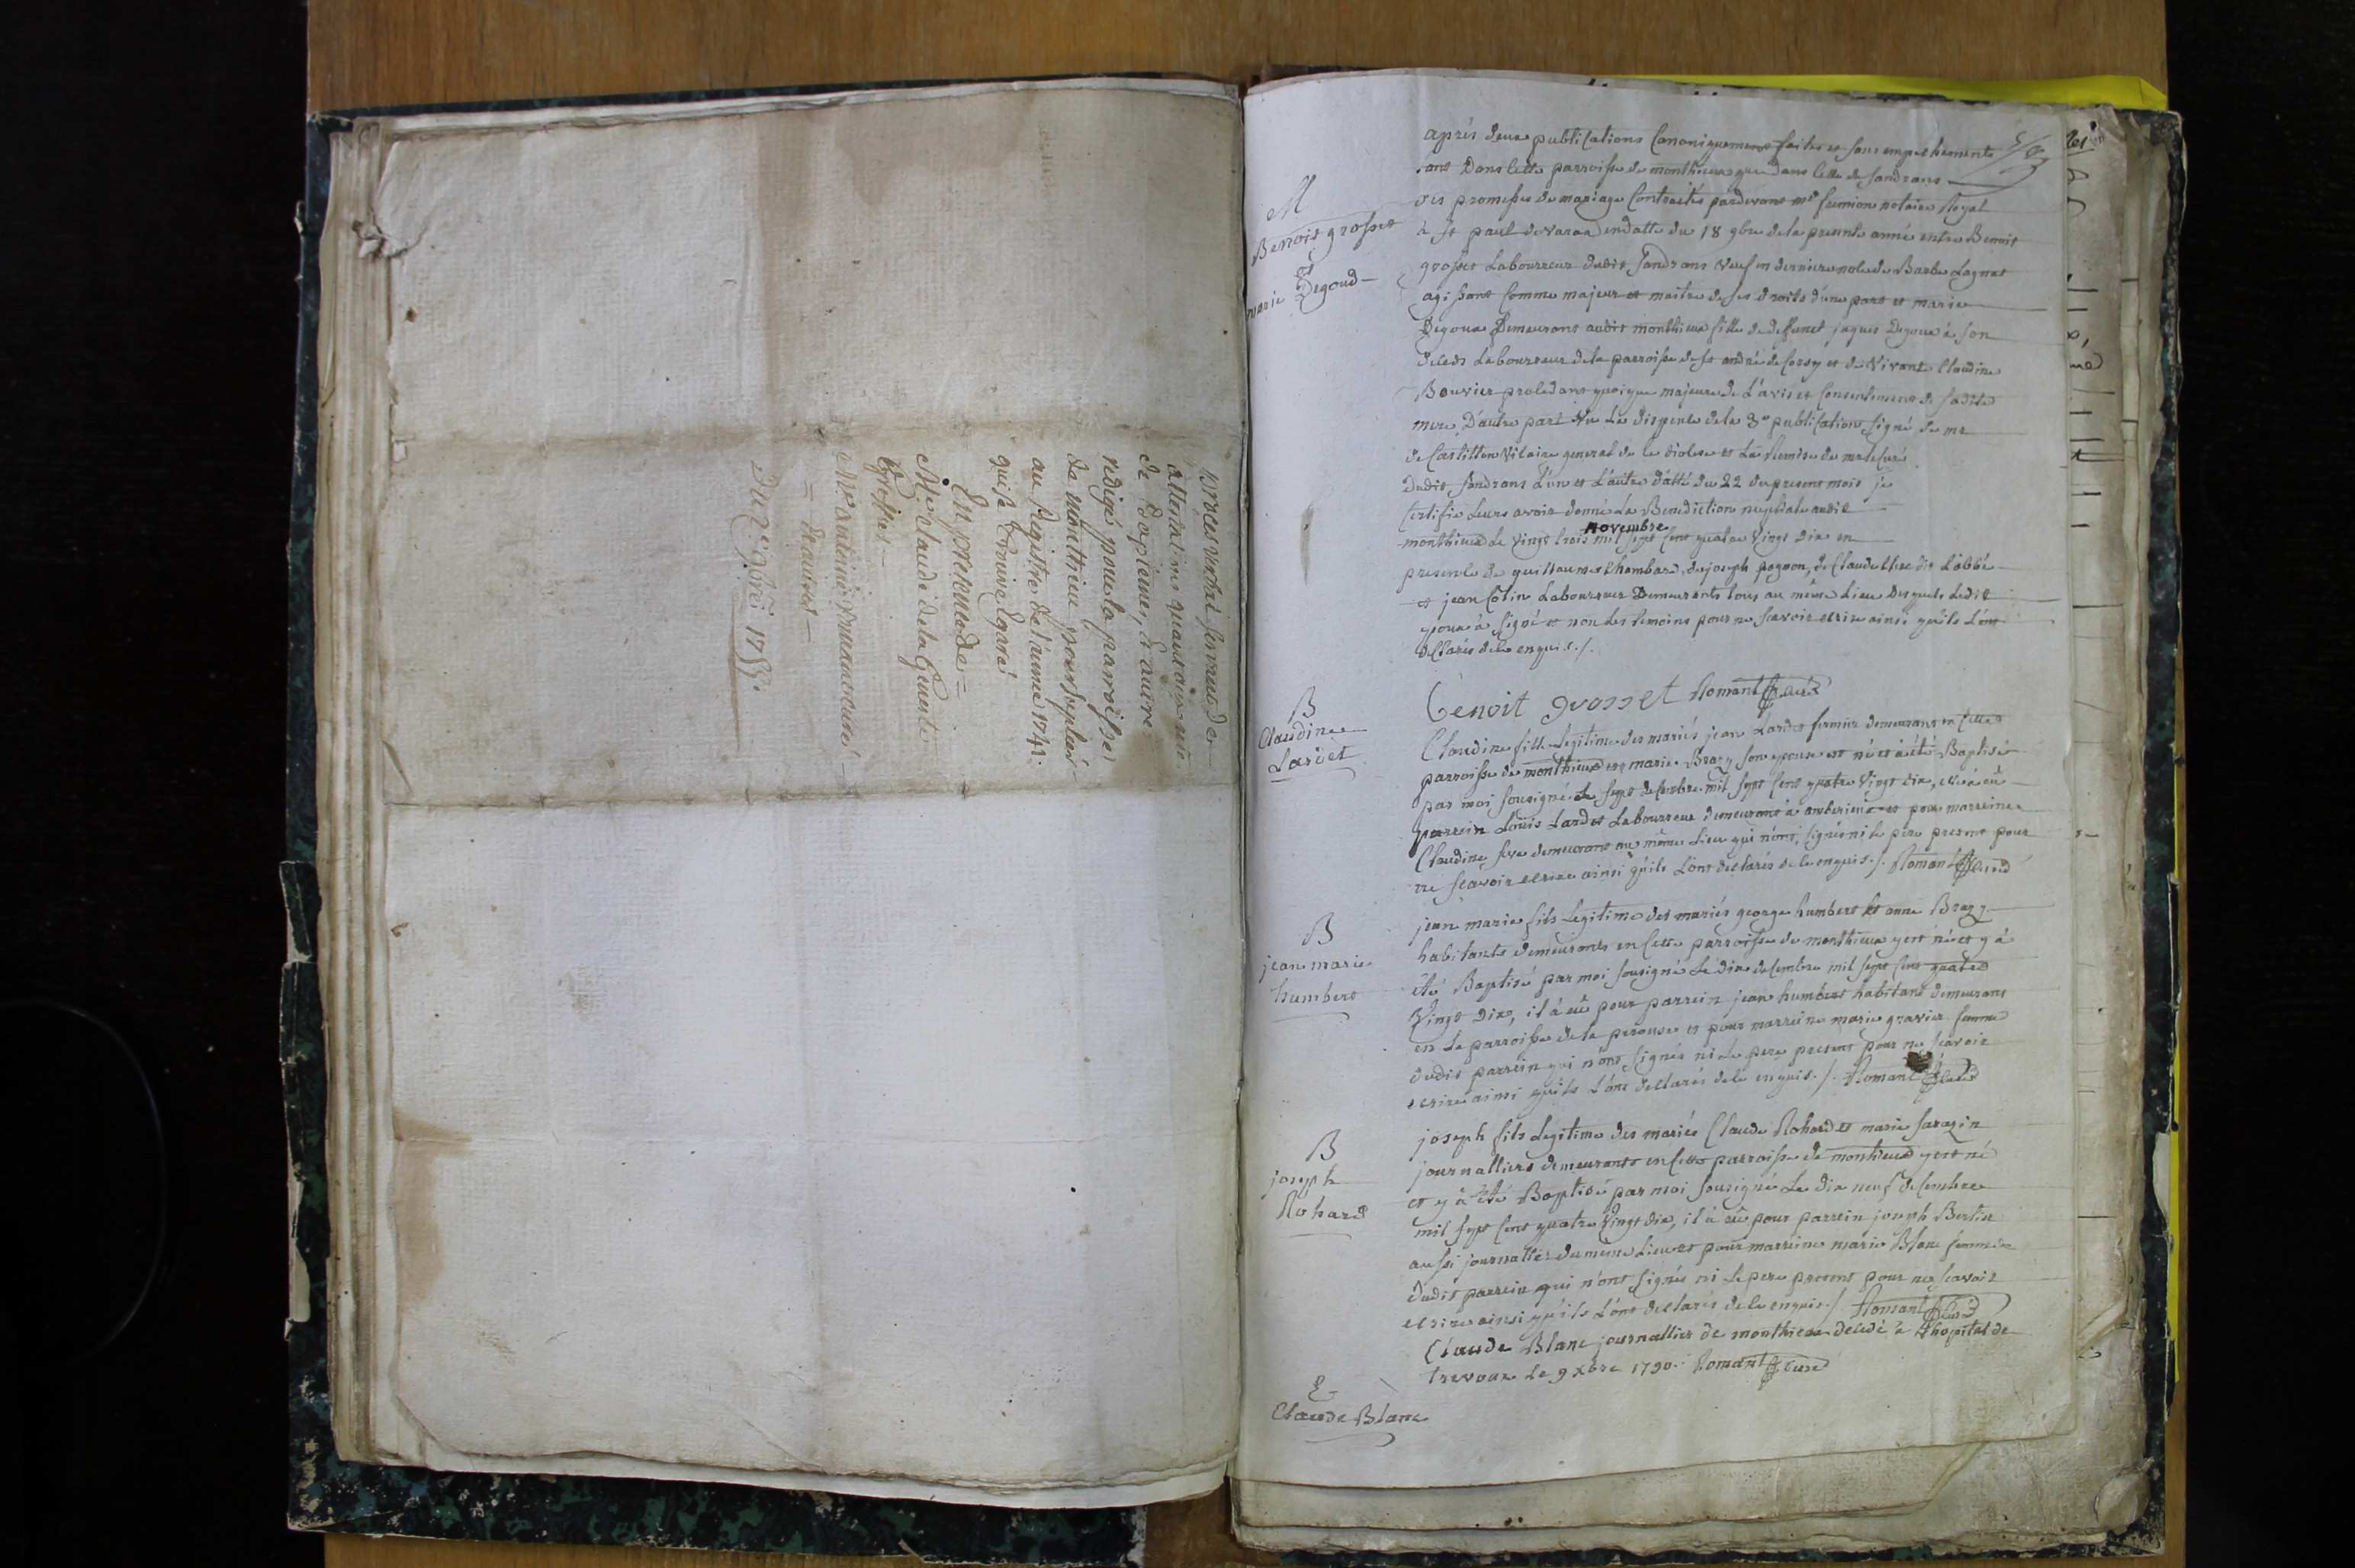 procès verbal servant de
attestations quant aux
de Baptêmes, à autre
redigé pour la parroisse
de Monthieu pour supleer
au Registre de l'année 1741
qui se trouve Egaré
En presence de =
Me Claude de la
Greffier
Me antoine curé
Du 2 1755.
après deux publications Canoniquement faites et sans empechements
tant Dans cette parroisse de monthieux que Dans celle de sandrans
des promesses de mariage Contractés pardevant me notaire Royal
à st paul de varax en datte du 18 9bre de la presente année entre Benoit
grosset Laboureur dudit sandrans veuf en de Barbe Lagnat
agissant comme majeur et maitre de ses droits d'une part et marie
Degoux Demeurant audit monthieux fille de deffunct jaques Degoux à son
deceds Laboureur de la parroisse de st andré de Corcy et de vivante Claudine
Bouvier procedant quoique majeure de L'avis et Consentement de sadite
mere D'autre part vu La dispense de la 3e publication signé de mr
de Castillon vicaire general de ce diocese et La Remise de mr le Curé
dudit sandrans L'un et L'autre datté du 22 du present mois je
Certifie Leurs avoir donné La Benediction nuptiale audit
monthieux Le vingt trois novembre mil sept cent quatre vingt dix en
presence de guillaume Chambard, de joseph pognon, de Claude dit L'abbé
et jean Colin Laboureur Demeurants tous au même Lieu desquels Ledit
epoux à signé et non Les temoins pour ne scavoir ecrire ainsi qu'ils L'ont
declarés de ce enquis./.
M
Benoit grosset
et
marie Degoud
Benoit grosset Romant Curé
B
Claudine
Lardet
Claudine fille Legitime des mariés jean Lardet fermier demeurans en cette
parroisse de monthieux et marie Brazy son epouse est née et à été Baptisée
par moi sousigné Le sept decembre mil sept cent quatre vingt dix, elle à eû
parrein Louis Lardet Laboureur demeurant à amberieux et pour marreine
Claudine demeurant au même Lieu qui n'ont signés ni le père present pour
ne scavoir ecrire ainsi qu'ils L'ont declarés de ce enquis./. Romant Curé
B
jean marie
humbert
jean marie fils Legitime des mariés george humbert et anne Brazy
habitants demeurants en cette parroisse de monthieux y est né et y à
été Baptisé par moi sousigné Le dix decembre mil sept cent quatre
vingt dix, il à eû pour parrein jean humbert habitant demeurant
en La parroisse de la perouse et pour marreine marie gravier femme
dudit parrein qui n'ont signés ni Le pere present pour ne scavoir
ecrire ainsi qu'ils L'ont declarés de ce enquis./. Romant Curé
B
joseph
Rohard
joseph fils Legitime des mariés Claude Rohard et marie sarazin
journalliers demeurants en cette parroisse de monthieux y est né
et y à été Baptisé par moi sousigné Le dix neuf decembre
mil sept cent quatre vingt dix, il à eû pour parrein joseph Bertin
aussi journallier du même Lieu et pour marreine marie Blanc femme
dudit parrein qui n'ont signés ni Le pere present pour ne scavoir
ecrire ainsi qu'ils L'ont declarés de ce enquis./. Romant Curé
Claude Blanc journallier de monthieux decedé à Lhopital de
trevoux Le 9 Xbre 1790. Romant Curé
Claude Blanc